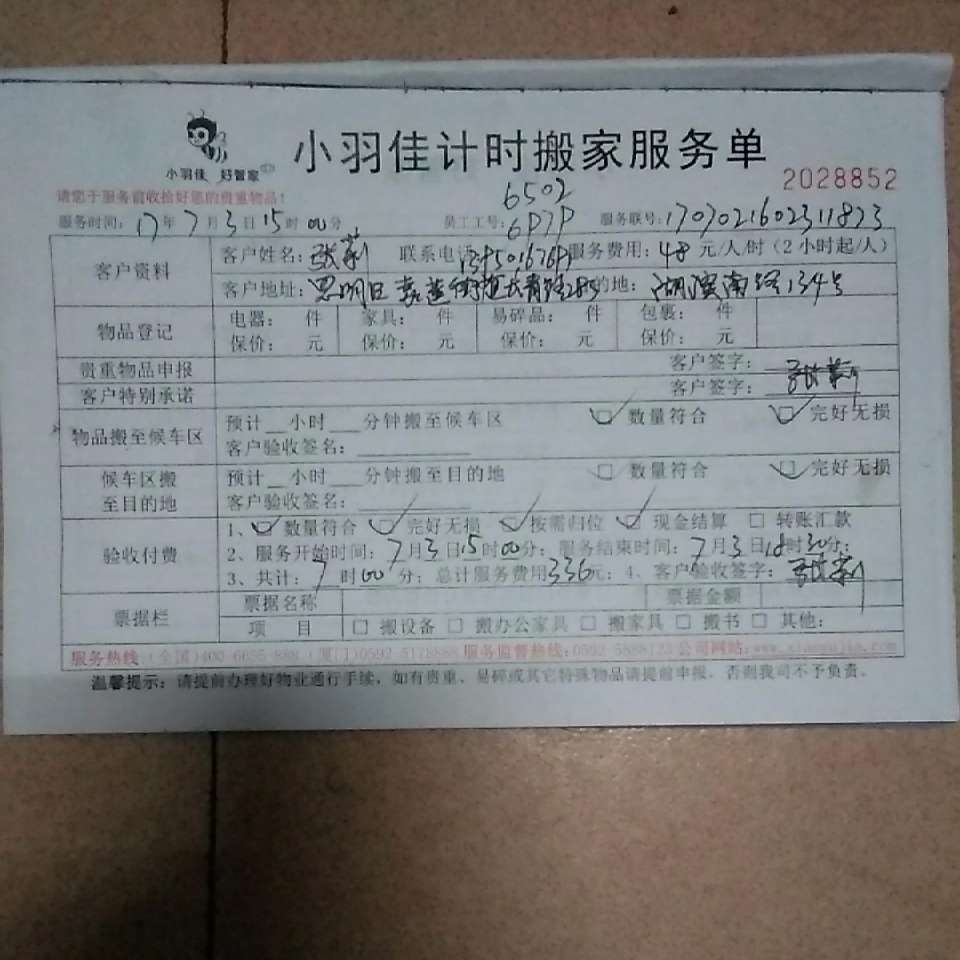 小羽佳 好管家
小羽佳计时搬家服务单
2028852
请您于服务前收拾好您的贵重物品！
6502
服务时间：17年7月3日15时00分 员工工号：6979 服务联号：17070216023 11873
客户资料 客户姓名： 联系电话 服务费用：48元/人/时（2小时起/人）
客户地址：思明区嘉莲街道长青路285 的地：湖滨南路134号
物品登记 电器： 件 家具： 件 易碎品： 件 包裹： 件
保价： 元 保价： 元 保价： 元 保价： 元
贵重物品申报 客户签字：
客户特别承诺 客户签字：
物品搬至候车区 预计__小时___分钟搬至候车区 ☑ 数量符合 ☑ 完好无损
客户验收签名：
候车区搬至目的地 预计__小时___分钟搬至目的地 □ 数量符合 ☑ 完好无损
客户验收签名：
验收付费 1、☑ 数量符合 ☑ 完好无损 ☑ 按需归位 ☑ 现金结算 □ 转账汇款
2、服务开始时间：7月3日15时00分；服务结束时间：7月3日18时30分；
3、共计：7时00分；总计服务费用336元；4、客户验收签字：
票据栏 票据名称 票据金额
项 目 □ 搬设备 □ 搬办公家具 □ 搬家具 □ 搬书 □ 其他：
服务热线（全国）400-6655-888（厦门）0592-5178888 服务监督热线：0592-5888123 公司网站：www.xiaoyujia.com
温馨提示：请提前办理好物业通行手续，如有贵重、易碎或其它特殊物品请提前申报，否则我司不予负责。